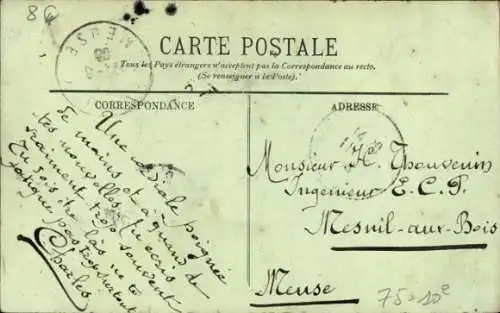 8€
MEUSE
CARTE POSTALE
Tous les Pays étrangers n'acceptent pas la Correspondance au recto.
(Se renseigner à la Poste).
CORRESPONDANCE
ADRESSE
Une cordiale poignée
de mains et à quand de
tes nouvelles. Tu écris
vraiment trop souvent
Tu dois être las ne te
fatigue pas trop surtout
Charles
Monsieur H. Thouvenin
Ingénieur E. C. P.
Mesnil-aux-Bois
Meuse